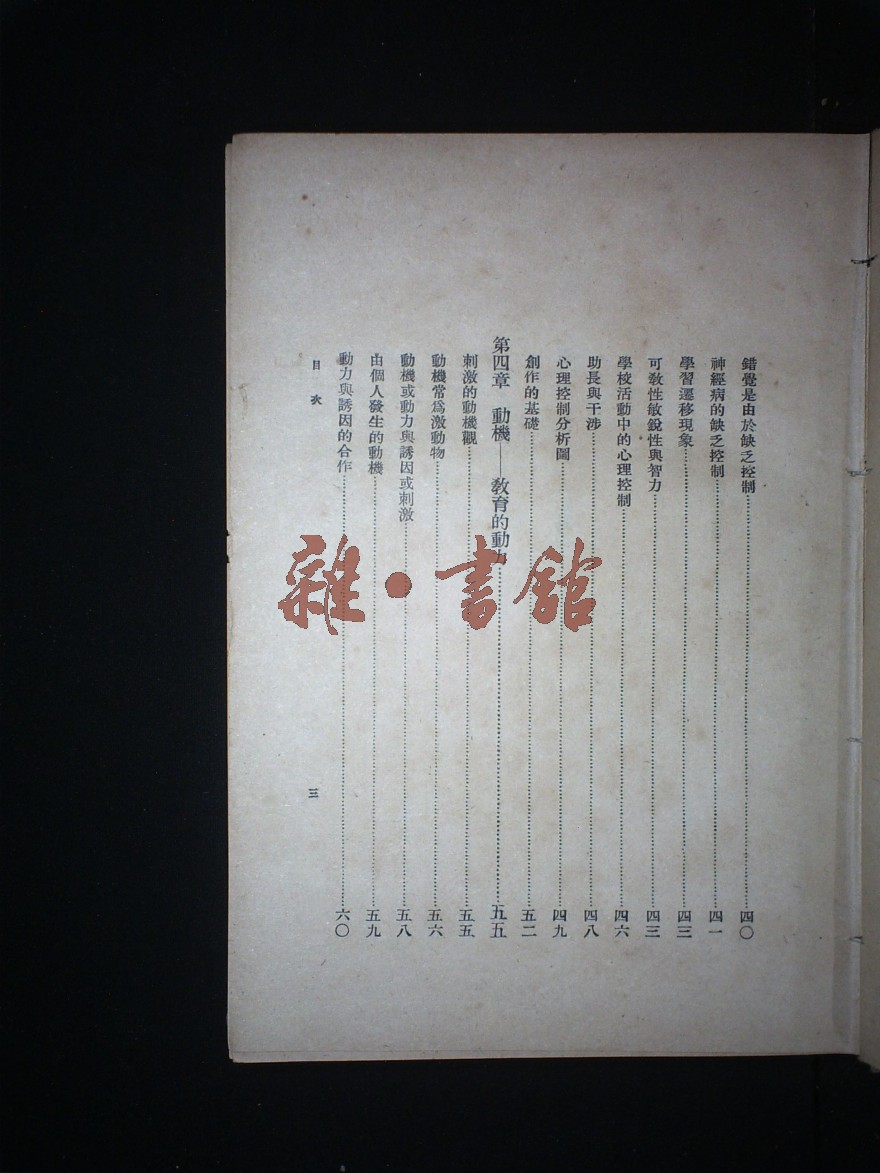 錯覺是由於缺乏控制……四〇
神經病的缺乏控制……四一
學習遷移現象……四三
可教性敏銳性與智力……四三
學校活動中的心理控制……四六
助長與干涉……四八
心理控制分析圖……四九
創作的基礎……五二
第四章 動機——教育的動力……五五
刺激的動機觀……五五
動機常爲激動物……五六
動機或動力與誘因或刺激……五八
由個人發生的動機……五九
動力與誘因的合作……六〇
目次
三
雜·書館